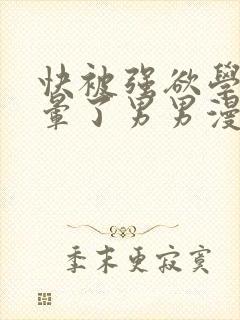 快被强欲學
晕了男男漫
季末更寂寞